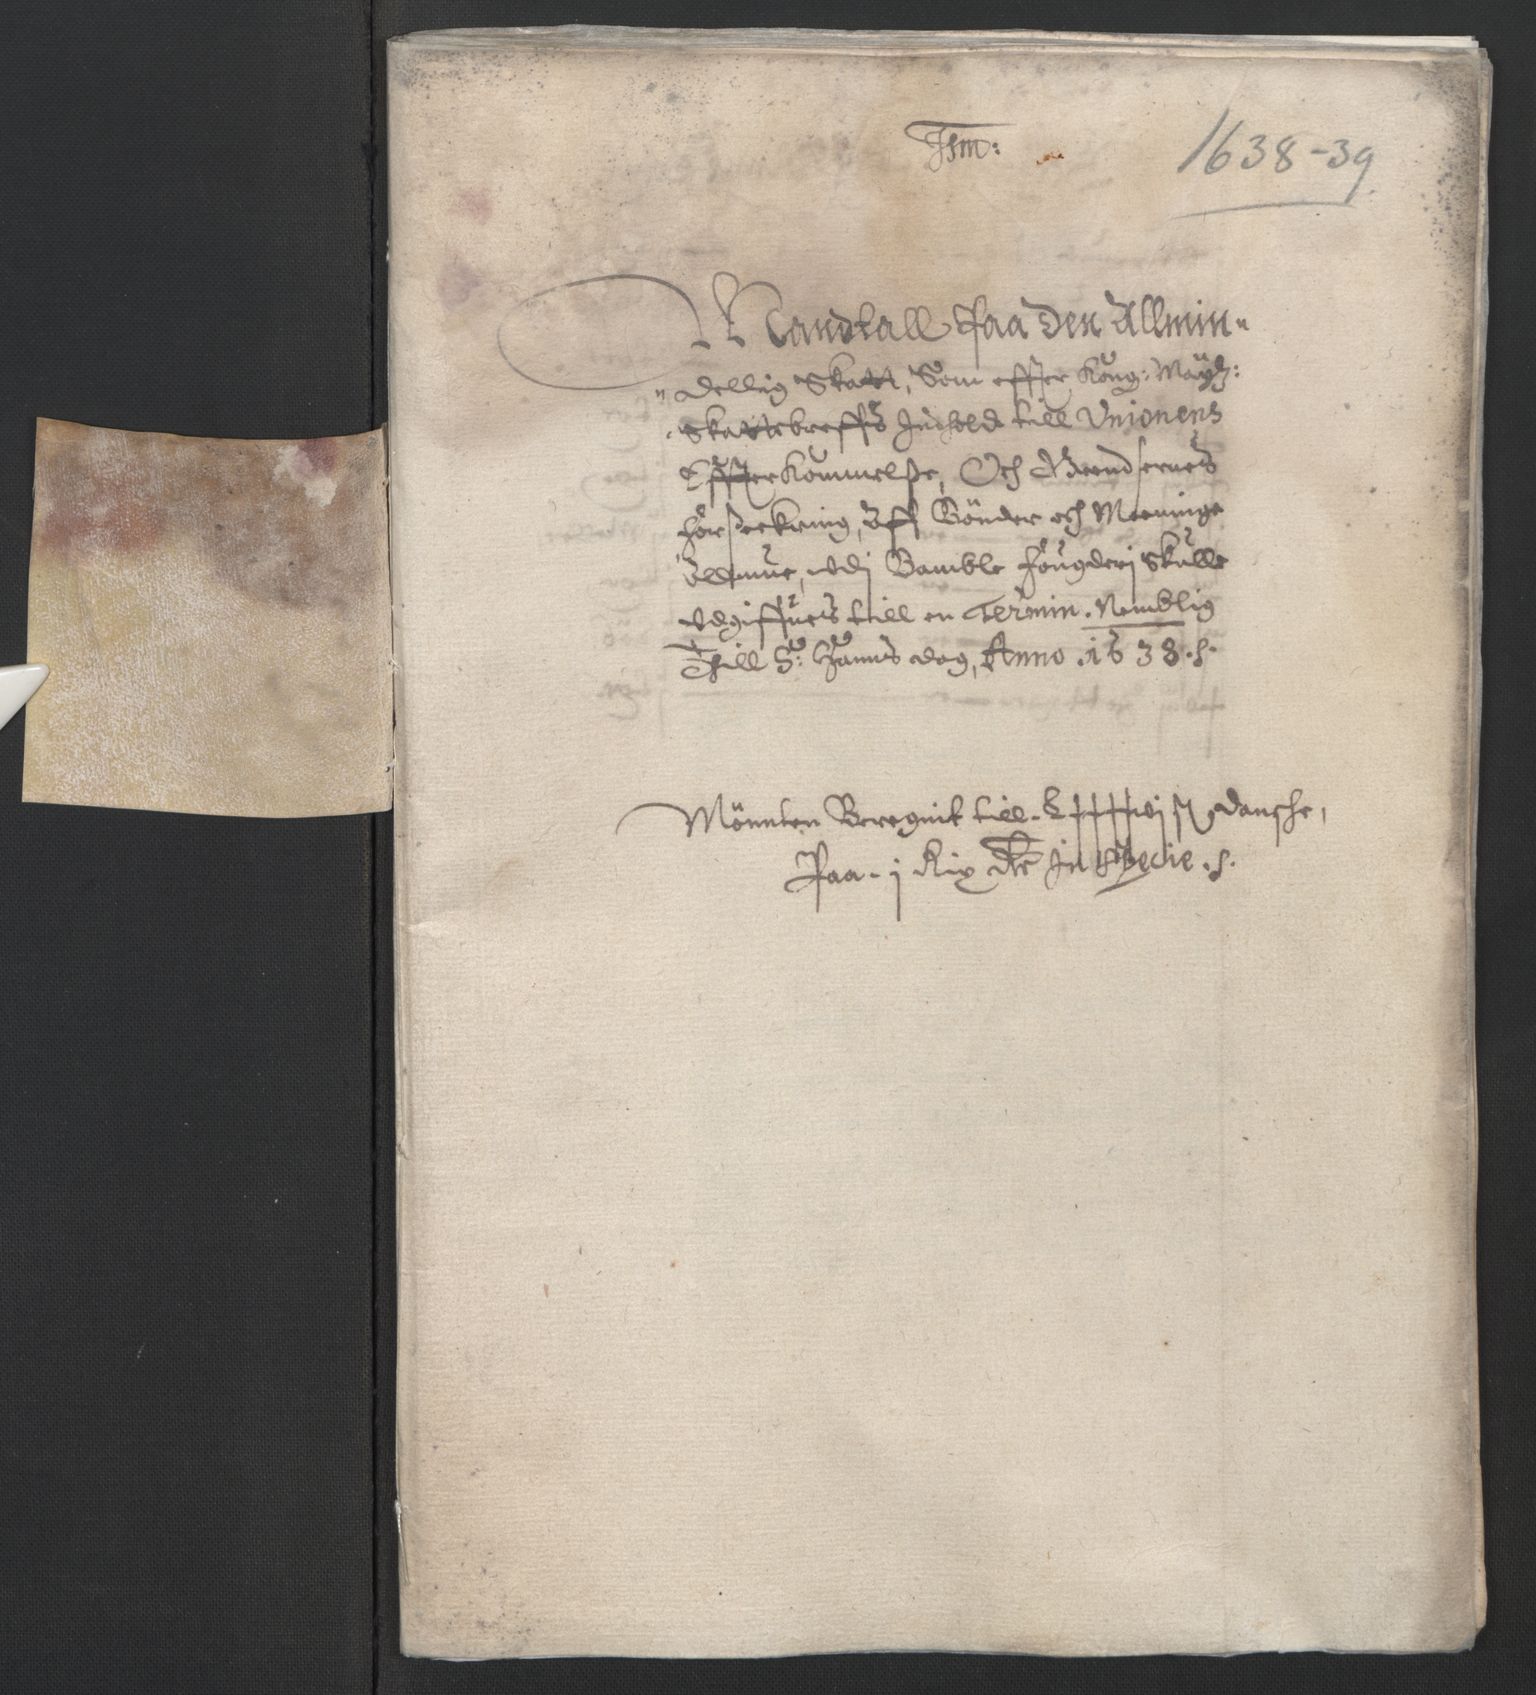 Jsm:
1638-39
Mandtall Paa Den Allmin„
„dellig Skatt, Som effter Kong: Maytz:
Skattebreffs Indhold till Unionens
Effterkommelße, Och Grendsernes
forßeekring, Aff Bönder och Meeninge
Allmue, udj Bamble fougderj Skulle
udgiffues till en Termin. Nemblig
Thill S: Hanns dag, Anno .1638.
Mönnten Beregnit till. Danshe,
Paa. j Rix dlr In Specie.